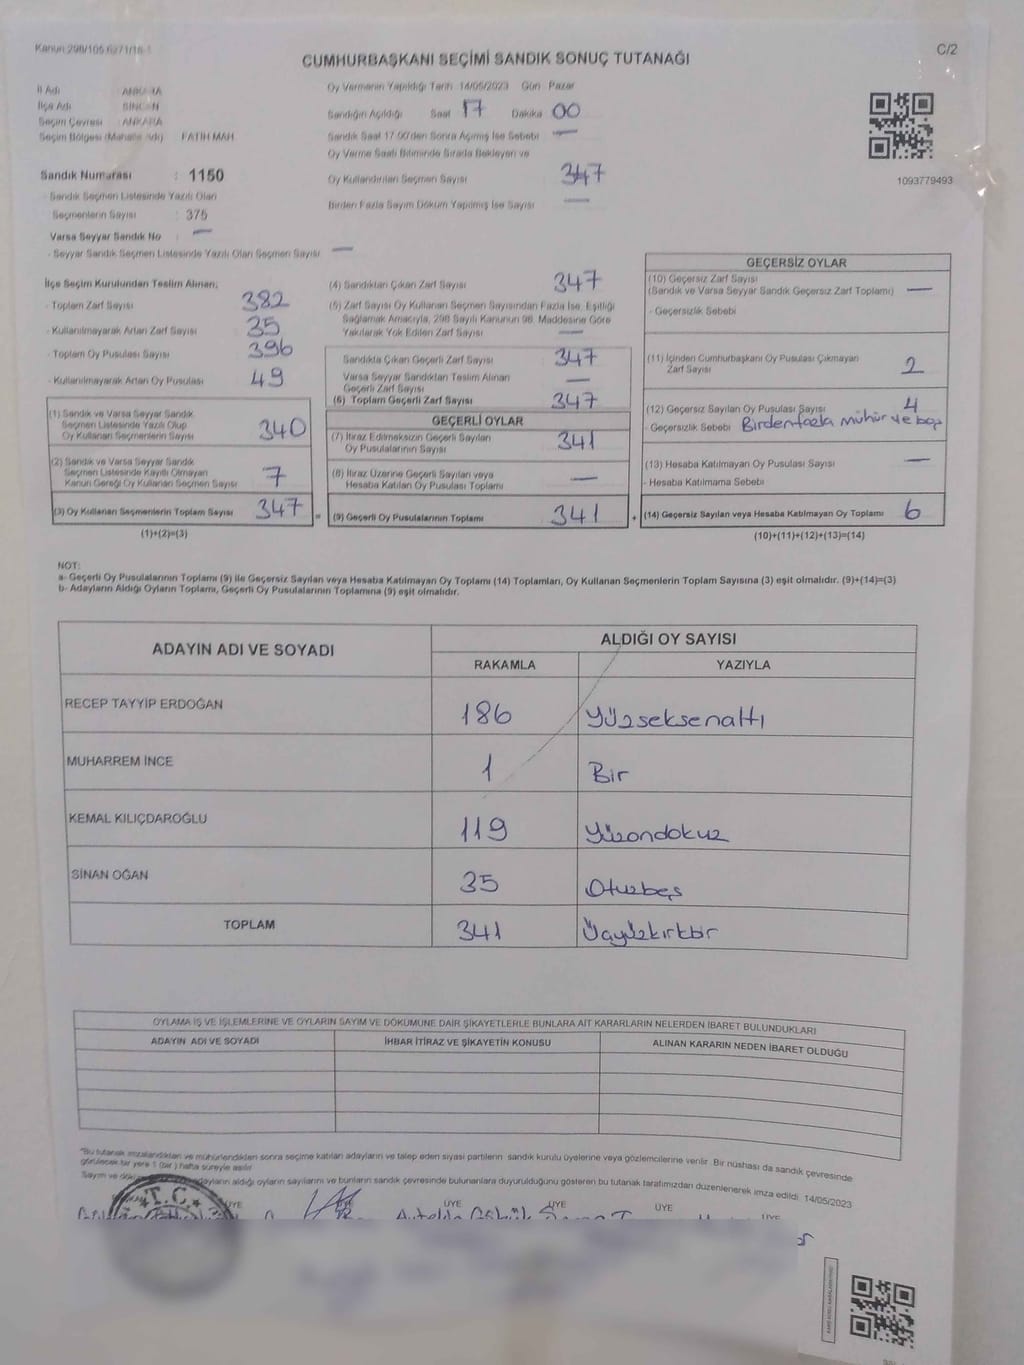 Kanun 298/105,6271/18-1
C/2
CUMHURBAŞKANI SEÇİMİ SANDIK SONUÇ TUTANAĞI
İl Adı : ANKARA
İlçe Adı : SİNCAN
Seçim Çevresi : ANKARA
Seçim Bölgesi (Mahalle Adı) FATİH MAH
Sandık Numarası : 1150
- Sandık Seçmen Listesinde Yazılı Olan
Seçmenlerin Sayısı : 375
Varsa Seyyar Sandık No : —
- Seyyar Sandık Seçmen Listesinde Yazılı Olan Seçmen Sayısı —
Oy Vermenin Yapıldığı Tarih 14/05/2023 Gün Pazar
Sandığın Açıldığı Saat 17 Dakika 00
Sandık Saat 17.00'den Sonra Açılmış İse Sebebi —
Oy Verme Saati Bitiminde Sırada Bekleyen ve
Oy Kullandırılan Seçmen Sayısı 347
Birden Fazla Sayım Döküm Yapılmış İse Sayısı —
1093779493
İlçe Seçim Kurulundan Teslim Alınan;
- Toplam Zarf Sayısı 382
- Kullanılmayarak Artan Zarf Sayısı 35
- Toplam Oy Pusulası Sayısı 396
- Kullanılmayarak Artan Oy Pusulası 49
(1) Sandık ve Varsa Seyyar Sandık
Seçmen Listesinde Yazılı Olup
Oy Kullanan Seçmenlerin Sayısı 340
(2) Sandık ve Varsa Seyyar Sandık
Seçmen Listesinde Kayıtlı Olmayan
Kanun Gereği Oy Kullanan Seçmen Sayısı 7
(3) Oy Kullanan Seçmenlerin Toplam Sayısı 347
(1)+(2)=(3)
(4) Sandıktan Çıkan Zarf Sayısı 347
(5) Zarf Sayısı Oy Kullanan Seçmen Sayısından Fazla İse, Eşitliği
Sağlamak Amacıyla, 298 Sayılı Kanunun 98. Maddesine Göre
Yakılarak Yok Edilen Zarf Sayısı —
Sandıkta Çıkan Geçerli Zarf Sayısı 347
Varsa Seyyar Sandıktan Teslim Alınan
Geçerli Zarf Sayısı —
(6) Toplam Geçerli Zarf Sayısı 347
GEÇERLİ OYLAR
(7) İtiraz Edilmeksizin Geçerli Sayılan
Oy Pusulasının Sayısı 341
(8) İtiraz Üzerine Geçerli Sayılan veya
Hesaba Katılan Oy Pusulası Toplamı —
= (9) Geçerli Oy Pusulalarının Toplamı 341
GEÇERSİZ OYLAR
(10) Geçersiz Zarf Sayısı
(Sandık ve Varsa Seyyar Sandık Geçersiz Zarf Toplamı) —
- Geçersizlik Sebebi
(11) İçinden Cumhurbaşkanı Oy Pusulası Çıkmayan
Zarf Sayısı 2
(12) Geçersiz Sayılan Oy Pusulası Sayısı 4
- Geçersizlik Sebebi Birdenfazla mühür ve boş
(13) Hesaba Katılmayan Oy Pusulası Sayısı —
- Hesaba Katılmama Sebebi
+ (14) Geçersiz Sayılan veya Hesaba Katılmayan Oy Toplamı 6
(10)+(11)+(12)+(13)=(14)
NOT:
a- Geçerli Oy Pusulalarının Toplamı (9) ile Geçersiz Sayılan veya Hesaba Katılmayan Oy Toplamı (14) Toplamları, Oy Kullanan Seçmenlerin Toplam Sayısına (3) eşit olmalıdır. (9)+(14)=(3)
b- Adayların Aldığı Oyların Toplamı, Geçerli Oy Pusulalarının Toplamına (9) eşit olmalıdır.
ADAYIN ADI VE SOYADI
ALDIĞI OY SAYISI
RAKAMLA YAZIYLA
RECEP TAYYİP ERDOĞAN 186 Yüzseksenaltı
MUHARREM İNCE 1 Bir
KEMAL KILIÇDAROĞLU 119 Yüzondokuz
SİNAN OĞAN 35 Otuzbeş
TOPLAM 341 Üçyüzkırkbir
OYLAMA İŞ VE İŞLEMLERİNE VE OYLARIN SAYIM VE DÖKÜMÜNE DAİR ŞİKAYETLERLE BUNLARA AİT KARARLARIN NELERDEN İBARET BULUNDUKLARI
ADAYIN ADI VE SOYADI İHBAR İTİRAZ VE ŞİKAYETİN KONUSU ALINAN KARARIN NEDEN İBARET OLDUĞU
"Bu tutanak imzalandıktan ve mühürlendikten sonra seçime katılan adayların ve talep eden siyasi partilerin sandık kurulu üyelerine veya gözlemcilerine verilir. Bir nüshası da sandık çevresinde
görülecek bir yere 1 (bir) hafta süreyle asılır
Sayım ve adayların aldığı oyların sayılarını ve bunların sandık çevresinde bulunanlara duyurulduğunu gösteren bu tutanak tarafımızdan düzenlenerek imza edildi. 14/05/2023
T.C.
ÜYE ÜYE ÜYE ÜYE ÜYE